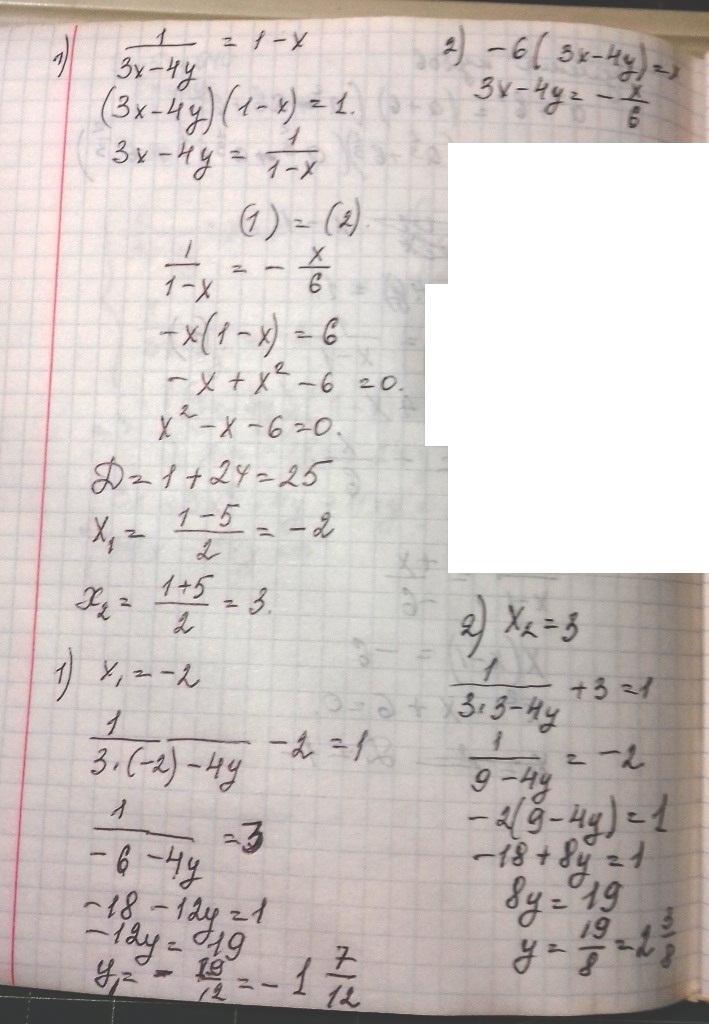 1) 1/(3x-4y) = 1-x
(3x-4y)(1-x) = 1.
3x-4y = 1/(1-x)
2) -6(3x-4y)=x
3x-4y = -x/6
(1) = (2).
1/(1-x) = - x/6
-x(1-x) = 6
-x + x² - 6 = 0.
x² - x - 6 = 0.
D = 1 + 24 = 25
x₁ = (1-5)/2 = -2
x₂ = (1+5)/2 = 3.
1) x₁ = -2
1/(3·(-2)-4y) - 2 = 1
1/(-6-4y) = 3
-18 - 12y = 1
-12y = 19
y₁ = - 19/12 = -1 7/12
2) x₂ = 3
1/(3·3-4y) + 3 = 1
1/(9-4y) = -2
-2(9-4y) = 1
-18 + 8y = 1
8y = 19
y = 19/8 = 2 3/8